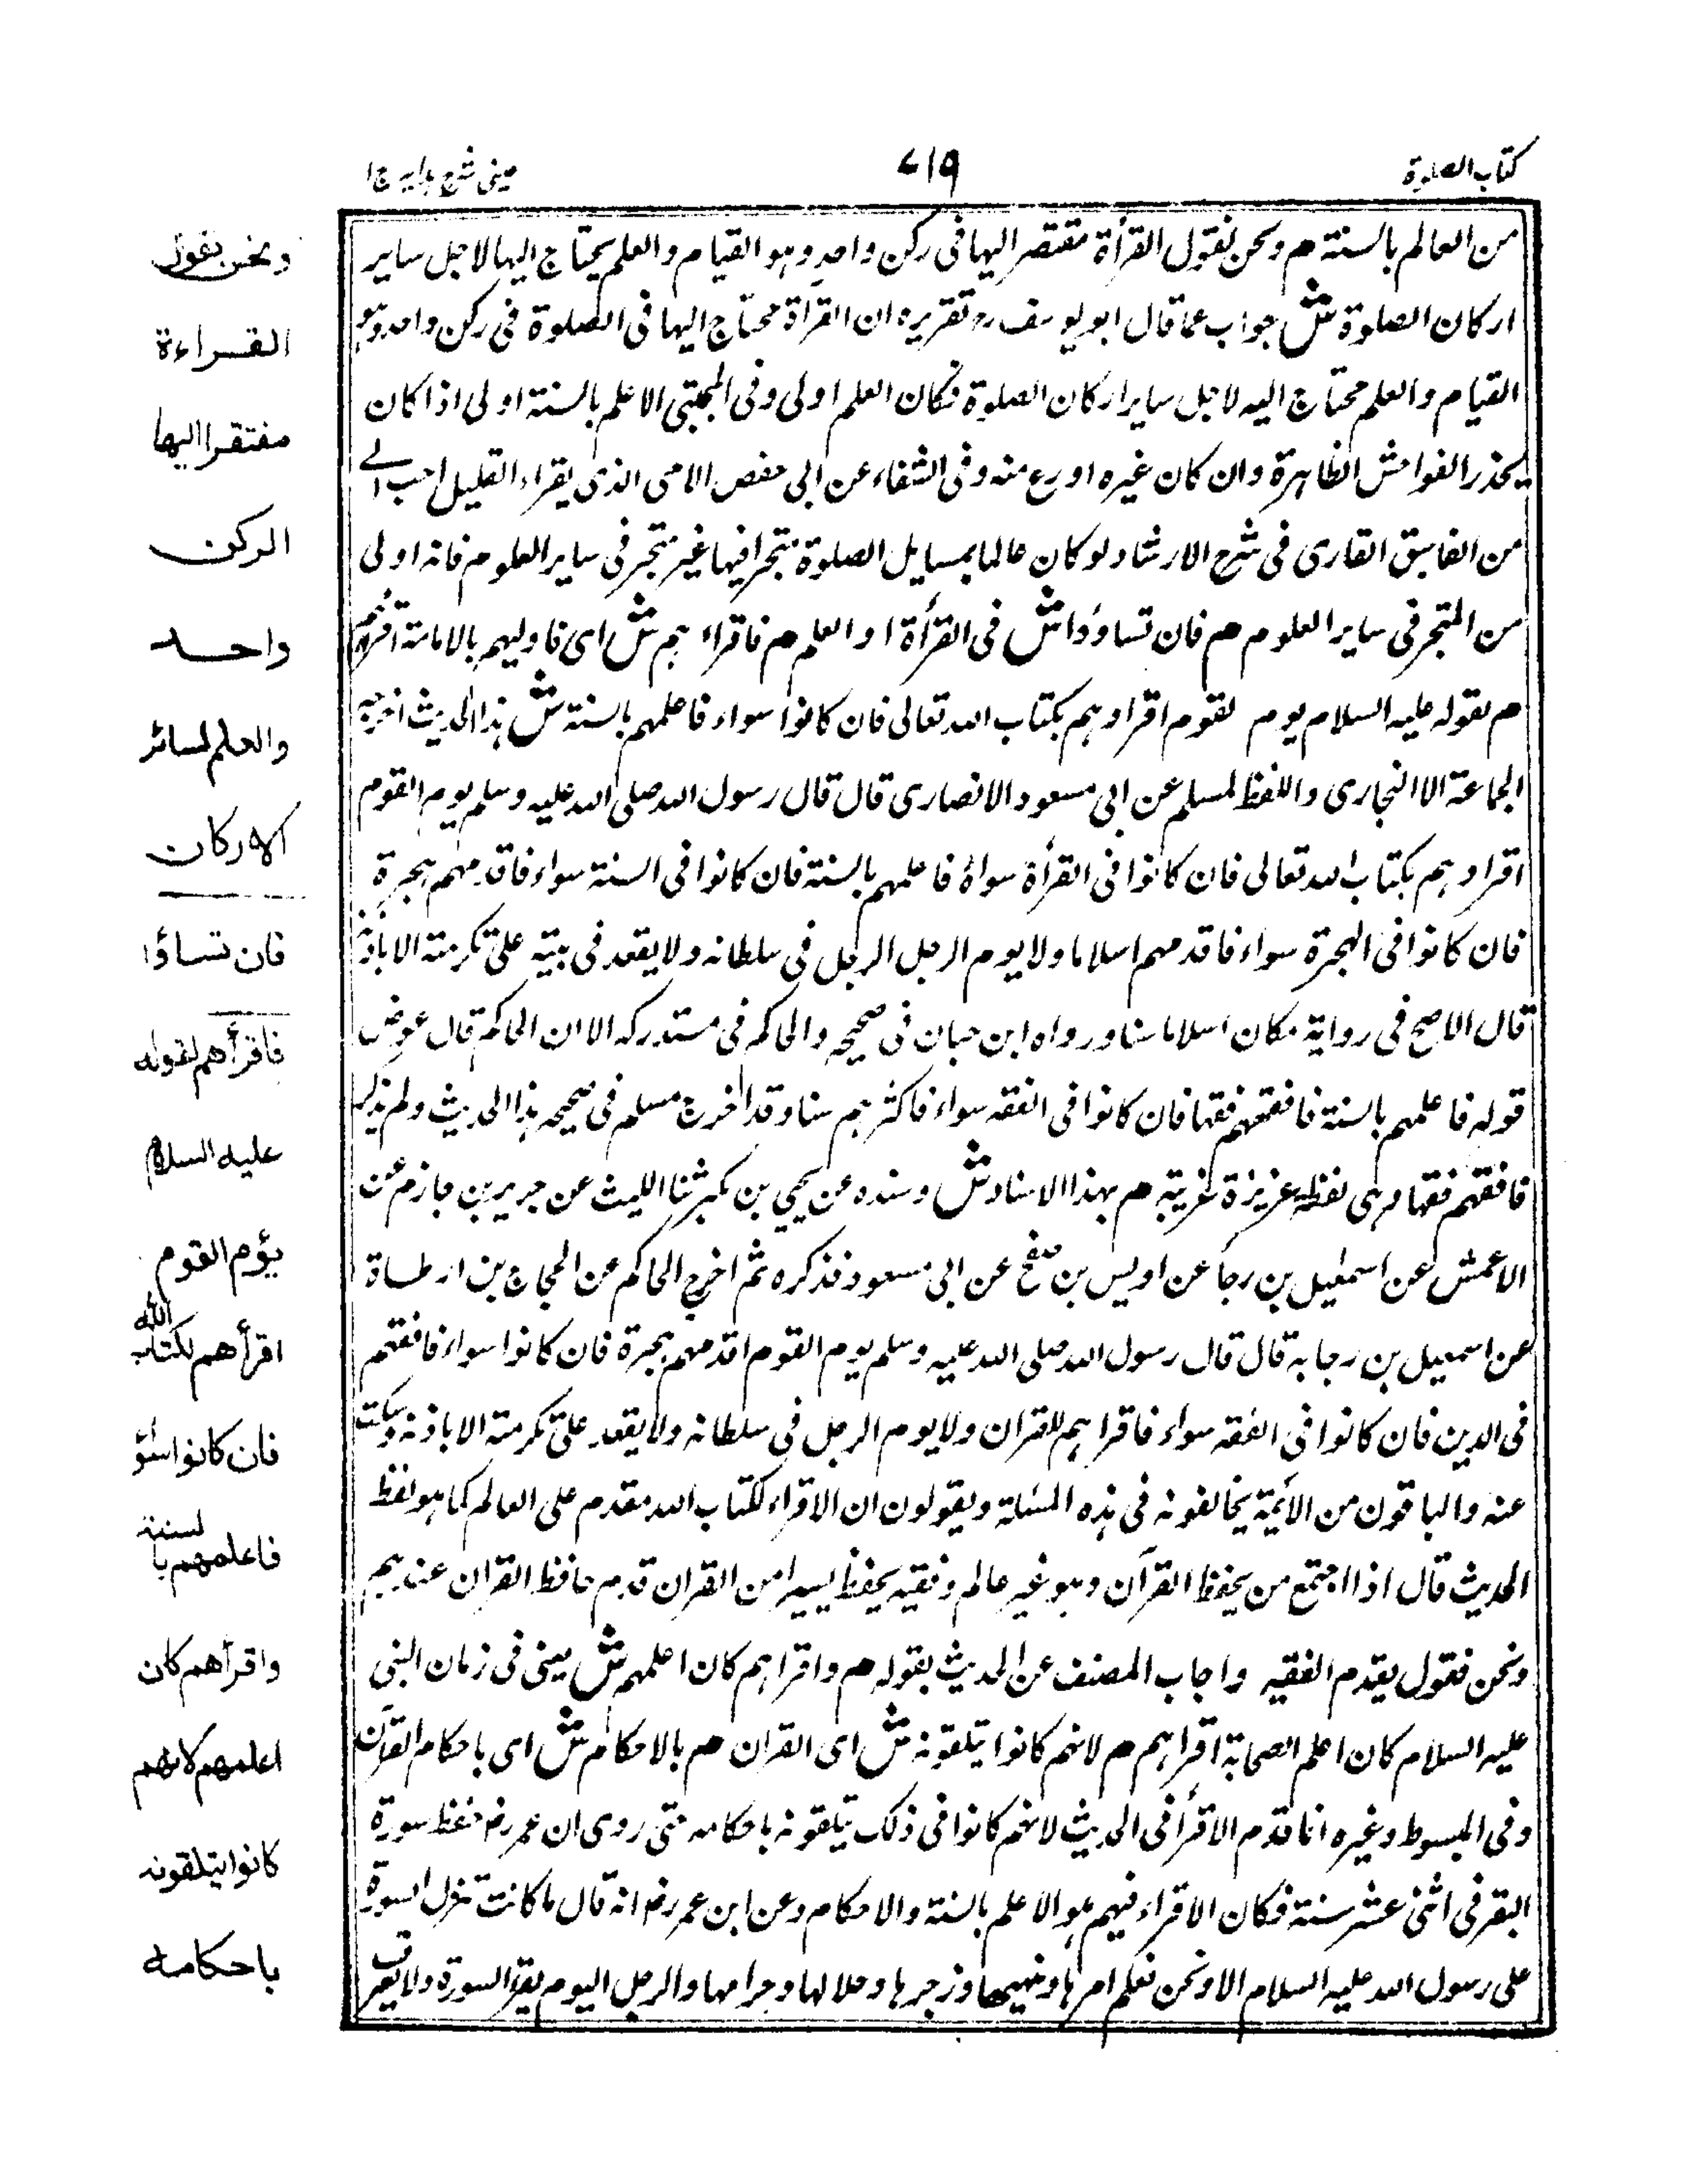 كتاب الصلوة
٧١٩
عينى شرح هدايه ج١
من العالم بالسنة هم ونحن نقول القرأة مفتقر اليها فى ركن واحد وهو القيام والعلم يحتاج اليها لاجل ساير
اركان الصلوة ش جواب عما قال ابو يوسف رح تقريره ان القرأة محتاج اليها فى الصلوة فى ركن واحد وهو
القيام والعلم محتاج اليه لاجل ساير اركان الصلوة فكان العلم اولى وفى المجتبى الاعلم بالسنة اولى اذا كان
يحذر الفواحش الظاهرة وان كان غيره اورع منه وفى الشفاء عن ابى حفص الامى الذى يقراء القليل احب الے
من الفاسق القارى فى شرح الارشاد لو كان عالما بمسايل الصلوة متبحرا فيها غير متبحر فى ساير العلوم فانه اولى
من المتبحر فى ساير العلوم هم فان تساؤدا ش فى القرأة او العلم هم فاقراء هم ش اى فاوليهم بالامامة اقرأهم
هم لقوله عليه السلام يوم لقوم اقراوهم بكتاب الله تعالى فان كانوا سواء فاعلمهم بالسنة ش هذا الحديث اخرجه
الجماعة الا البخارى واللفظ لمسلم عن ابى مسعود الانصارى قال قال رسول الله صلى الله عليه وسلم يوم القوم
اقراوهم بكتاب الله تعالى فان كانوا فى القرأة سواء فاعلمهم بالسنة فان كانوا فى السنة سواء فاقدمهم هجرة
فان كانوا فى الهجرة سواء فاقدمهم اسلاما ولا يوم الرجل الرجل فى سلطانه ولا يقعد فى بيته على تكرمته الا باذنه
قال الاصح فى رواية مكان اسلاما سنا ورواه ابن حبان فى صحيحه والحاكم فى مستدركه الا ان الحاكم قال عوض
قوله فاعلمهم بالسنة فافقههم فقها فان كانوا فى الفقه سواء فاكثرهم سنا وقد اخرج مسلم فى صحيحه هذا الحديث ولم يذكر
فافقههم فقها وهى لفظة عزيزة غريبة هم بهذا الاسناد ش وسنده عن يحيي بن بكير ثنا الليث عن جرير بن حازم عن
الاعمش عن اسمعيل بن رجا عن اويس بن ضمعج عن ابى مسعود فذكره ثم اخرج الحاكم عن الحجاج بن ارطاة
عن اسمعيل بن رجا به قال قال رسول الله صلى الله عليه وسلم يوم القوم اقدمهم هجرة فان كانوا سواء فافقههم
فى الدين فان كانوا فى الفقه سواء فاقراهم للقران ولا يوم الرجل فى سلطانه ولا يقعد على تكرمته الا باذنه وسكت
عنه والباقون من الأئمة يخالفونه فى هذه المسئلة ويقولون ان الاقراء لكتاب الله مقدم على العالم كما هو لفظ
الحديث قال اذا اجتمع من يحفظ القرآن وهو غير عالم وفقيه يحفظ يسيرا من القران قدم حافظ القران عندهم
ونحن فقول يقدم الفقيه واجاب المصنف عن الحديث بقوله هم واقراهم كان اعلمهم ش يعنى فى زمان النبى
عليه السلام كان اعلم الصحابة اقراهم هم لانهم كانوا يتلقونه ش اى القران هم بالاحكام ش اى باحكام القرآن
وفى المبسوط وغيره انما قدم الاقرأ فى الحديث لانهم كانوا فى ذلك يتلقونه باحكامه حتى روى ان عمر رض حفظ سورة
البقر فى اثنى عشر سنة فكان الاقراء فيهم هو الاعلم بالسنة والاحكام وعن ابن عمر رض انه قال ما كانت تنزل السورة
على رسول الله عليه السلام الا ونحن نعلم امرها ونهيها وزجرها وحلالها وحرامها والرجل اليوم يقرأ السورة ولا يعرف
ونحن نقول
القراءة
مفتقرا اليها
الركن
واحد
والعلم لسائر
الاركان
فان تساؤا
فاقرأهم لقوله
عليه السلام
يؤم القوم
اقرأهم لكتاب الله
فان كانوا سؤا
فاعلمهم بالسنة
واقرأهم كان
اعلمهم لانهم
كانوا يتلقونه
باحكامه